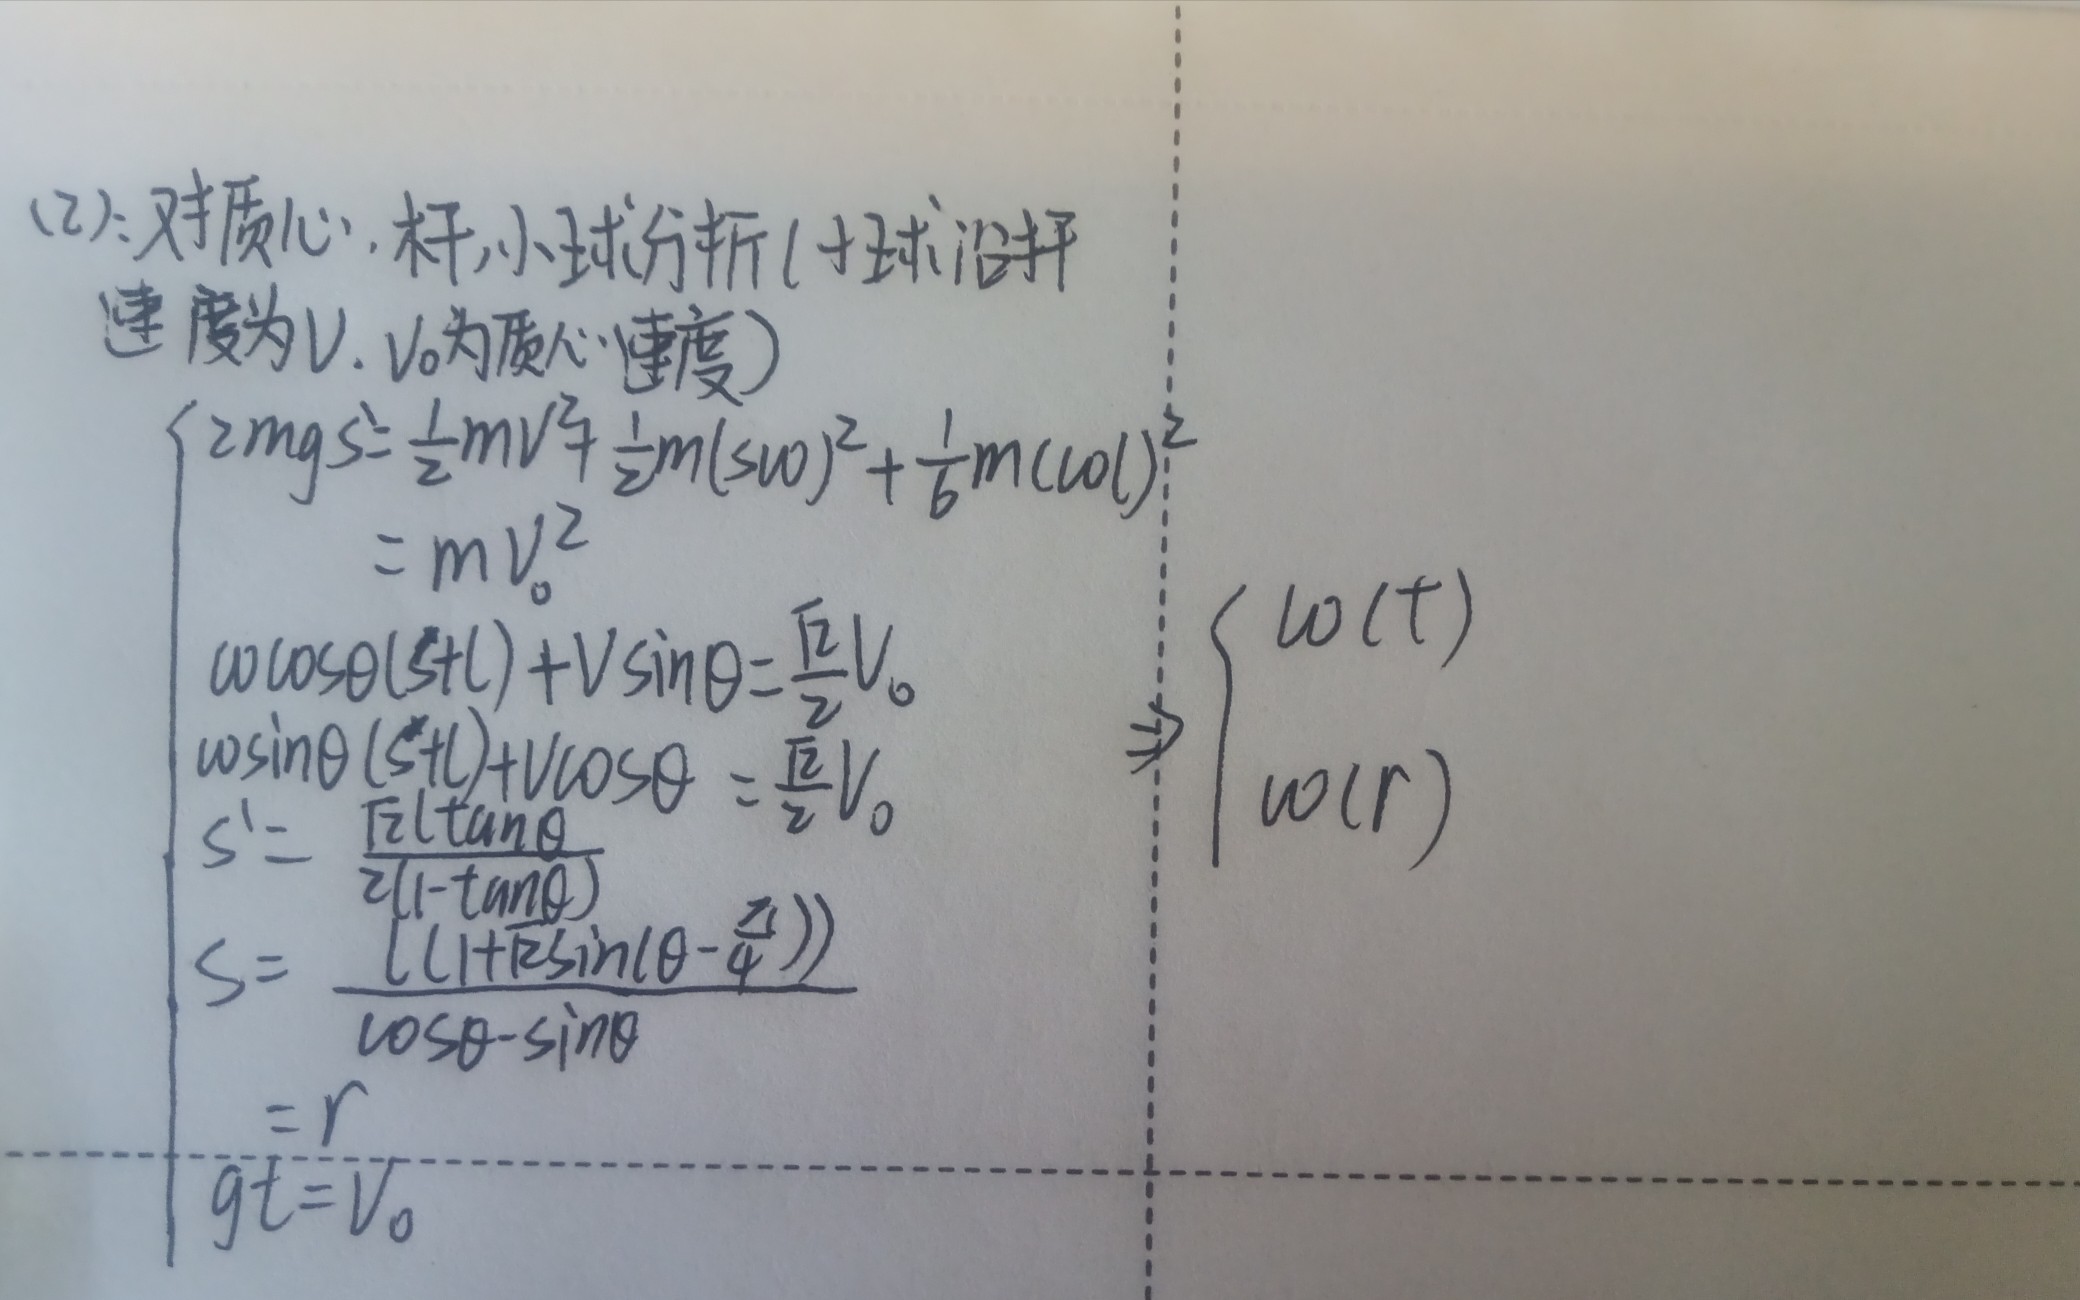 (2):对质心,杆,小球分析(小球沿杆
速度为V.V₀为质心速度)
2mgs'=\frac{1}{2}mV²+\frac{1}{2}m(sω)²+\frac{1}{6}m(ωl)²
=mV₀²
ωcosθ(s+l)+Vsinθ=\frac{√2}{2}V₀
ωsinθ(s+l)+Vcosθ=\frac{√2}{2}V₀
s'=\frac{√2ltanθ}{2(1-tanθ)}
s=\frac{l(1+√2sin(θ-\frac{π}{4}))}{cosθ-sinθ}
=r
gt=V₀
⇒
ω(t)
ω(r)